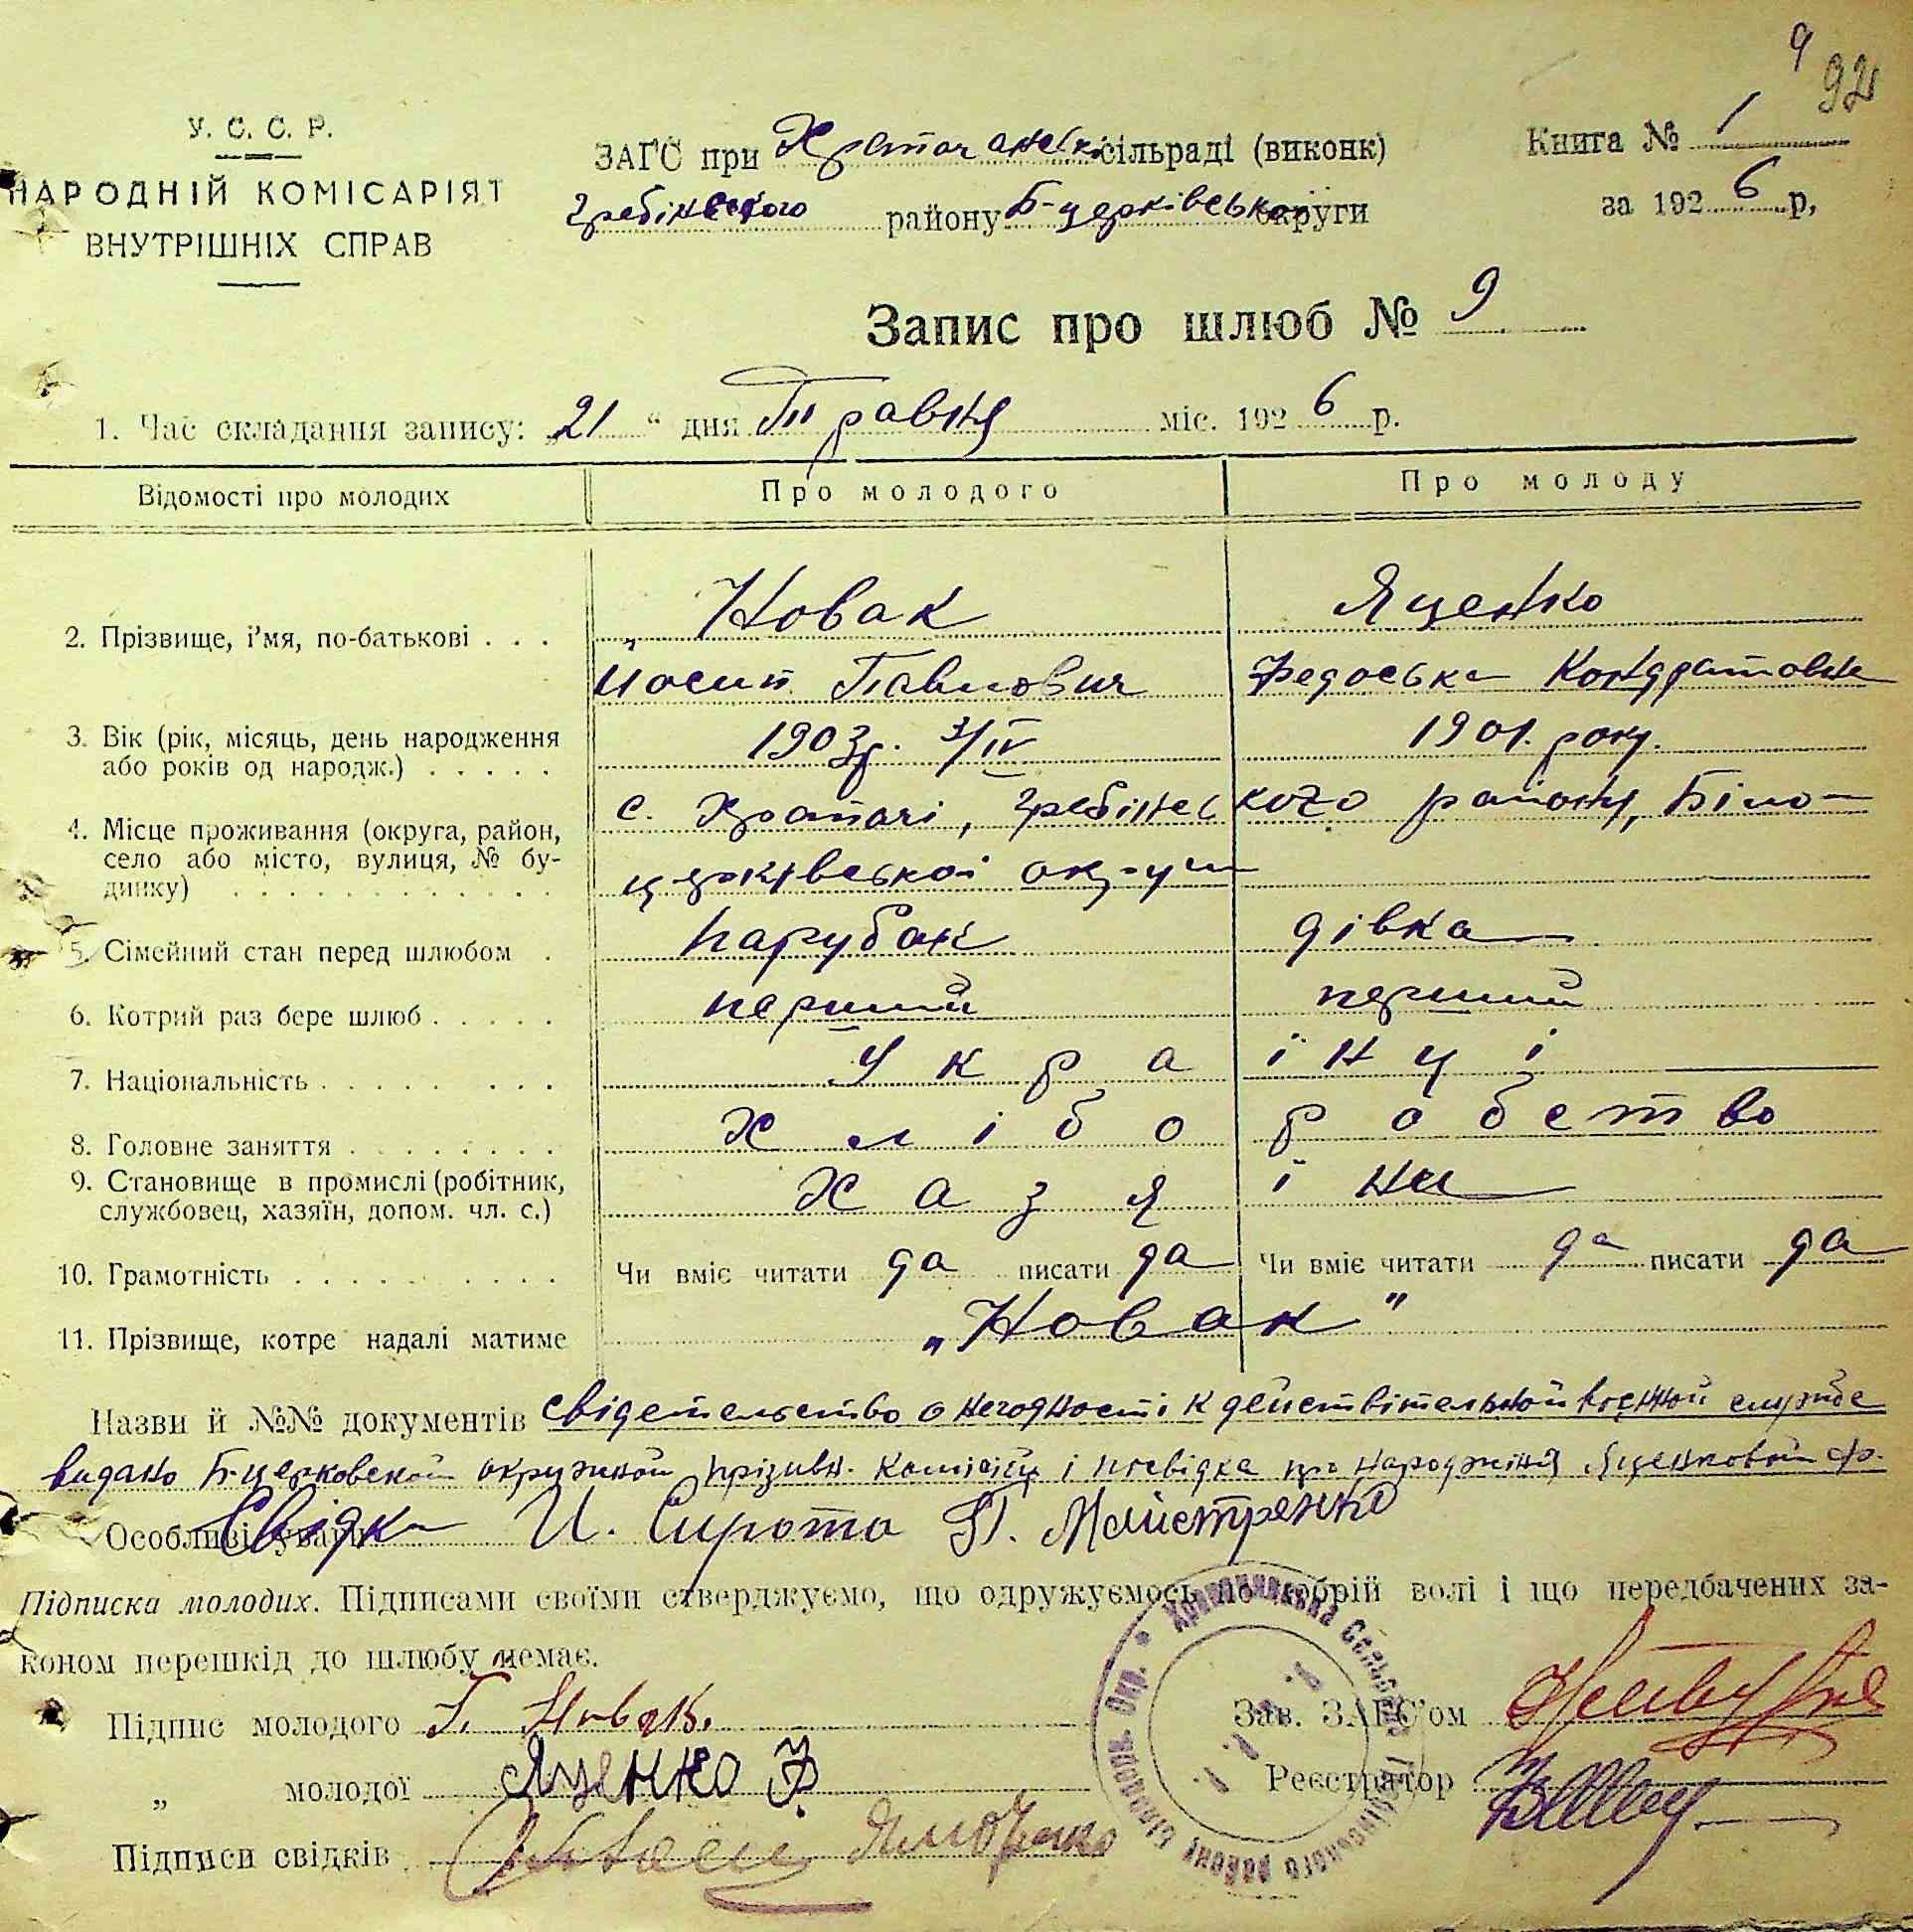 9
92
У. С. С. Р.
НАРОДНІЙ КОМІСАРІЯТ
ВНУТРІШНІХ СПРАВ
ЗАГС при Хратачанській сільраді (виконк)
Гребінського району Б-церківської округи
Книга № 1
за 1926 р,
Запис про шлюб № 9
1. Час складання запису: „21“ дня Травня міс. 1926 р.
Відомості про молодих
Про молодого
Про молоду
2. Прізвище, і'мя, по-батькові . . .
Новак
Яценко
Йосип Павлович
Федоська Кондратовна
3. Вік (рік, місяць, день народження
або років од народж.) . . . . .
1903р. 3/IV
1901. року.
4. Місце проживання (округа, район,
село або місто, вулиця, № бу-
динку) . . . . . . . . . . . .
с. Хратачі, Гребінського району, Біло-
церківської округи
5. Сімейний стан перед шлюбом .
парубок
дівка
6. Котрий раз бере шлюб . . . . .
перший
перший
7. Національність . . . . . . . .
Українці
8. Головне заняття . . . . . . . .
Хліборобство
9. Становище в промислі (робітник,
службовец, хазяїн, допом. чл. с.)
Хазяїни
10. Грамотність . . . . . . . . . .
Чи вміє читати да писати да
Чи вміє читати да писати да
11. Прізвище, котре надалі матиме
„Новак"
Назви й №№ документів свідетельство о негодності к действітельной военной службе
видано Б-церковской окружной прізивн. Комісієй і посвідка про народження Яценковой Ф.
Особливі уваги
Свідки И. Сирота П. Майстренко
Підписка молодих. Підписами своїми стверджуємо, що одружуємось по добрій волі і що передбачених за-
коном перешкід до шлюбу немає.
Підпис молодого Новак.
„ молодої Яценко Ф.
Підписи свідків
Зав. ЗАГС'ом
Реєстратор